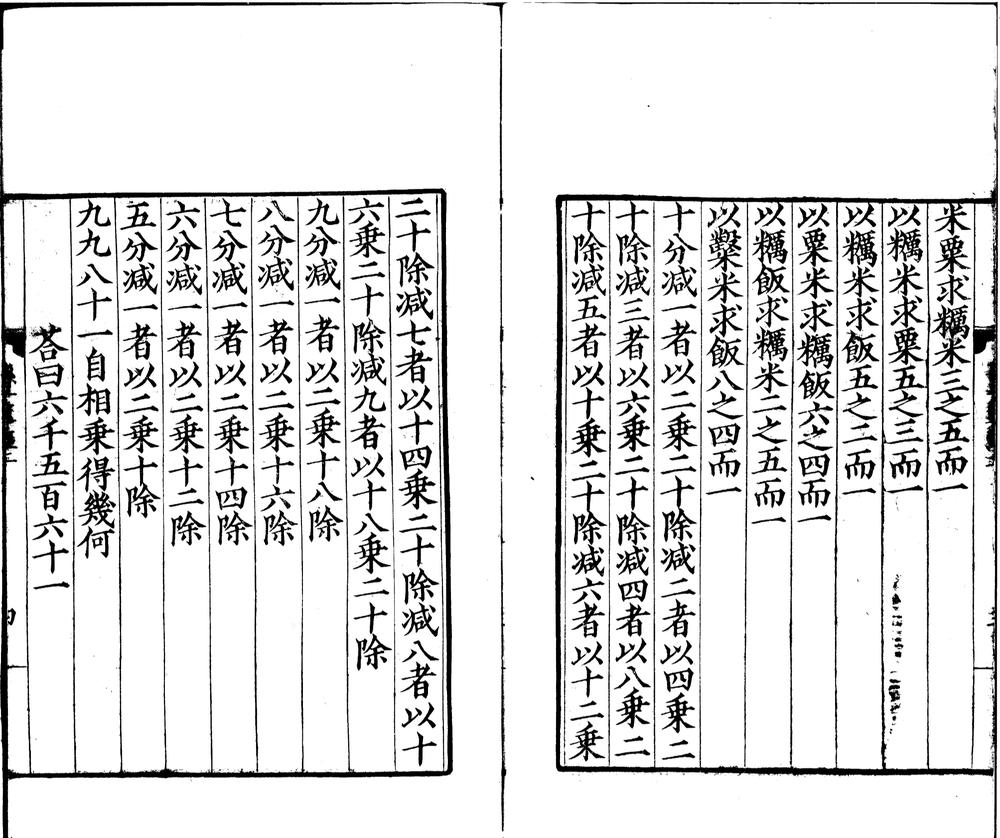 米粟求糲米三之五而一
以糲米求粟五之三而一
以糲米求飯五之二而一
以粟米求糲飯六之四而一
以糲飯求糲米二之五而一
以糳米求飯八之四而一
十分减一者以二乗二十除减二者以四乗二
十除减三者以六乗二十除减四者以八乗二
十除减五者以十乗二十除减六者以十二乗
二十除减七者以十四乗二十除减八者以十
六乗二十除减九者以十八乗二十除
九分减一者以二乗十八除
八分减一者以二乗十六除
七分减一者以二乗十四除
六分减一者以二乗十二除
五分减一者以二乗十除
九九八十一自相乗得幾何
荅曰六千五百六十一